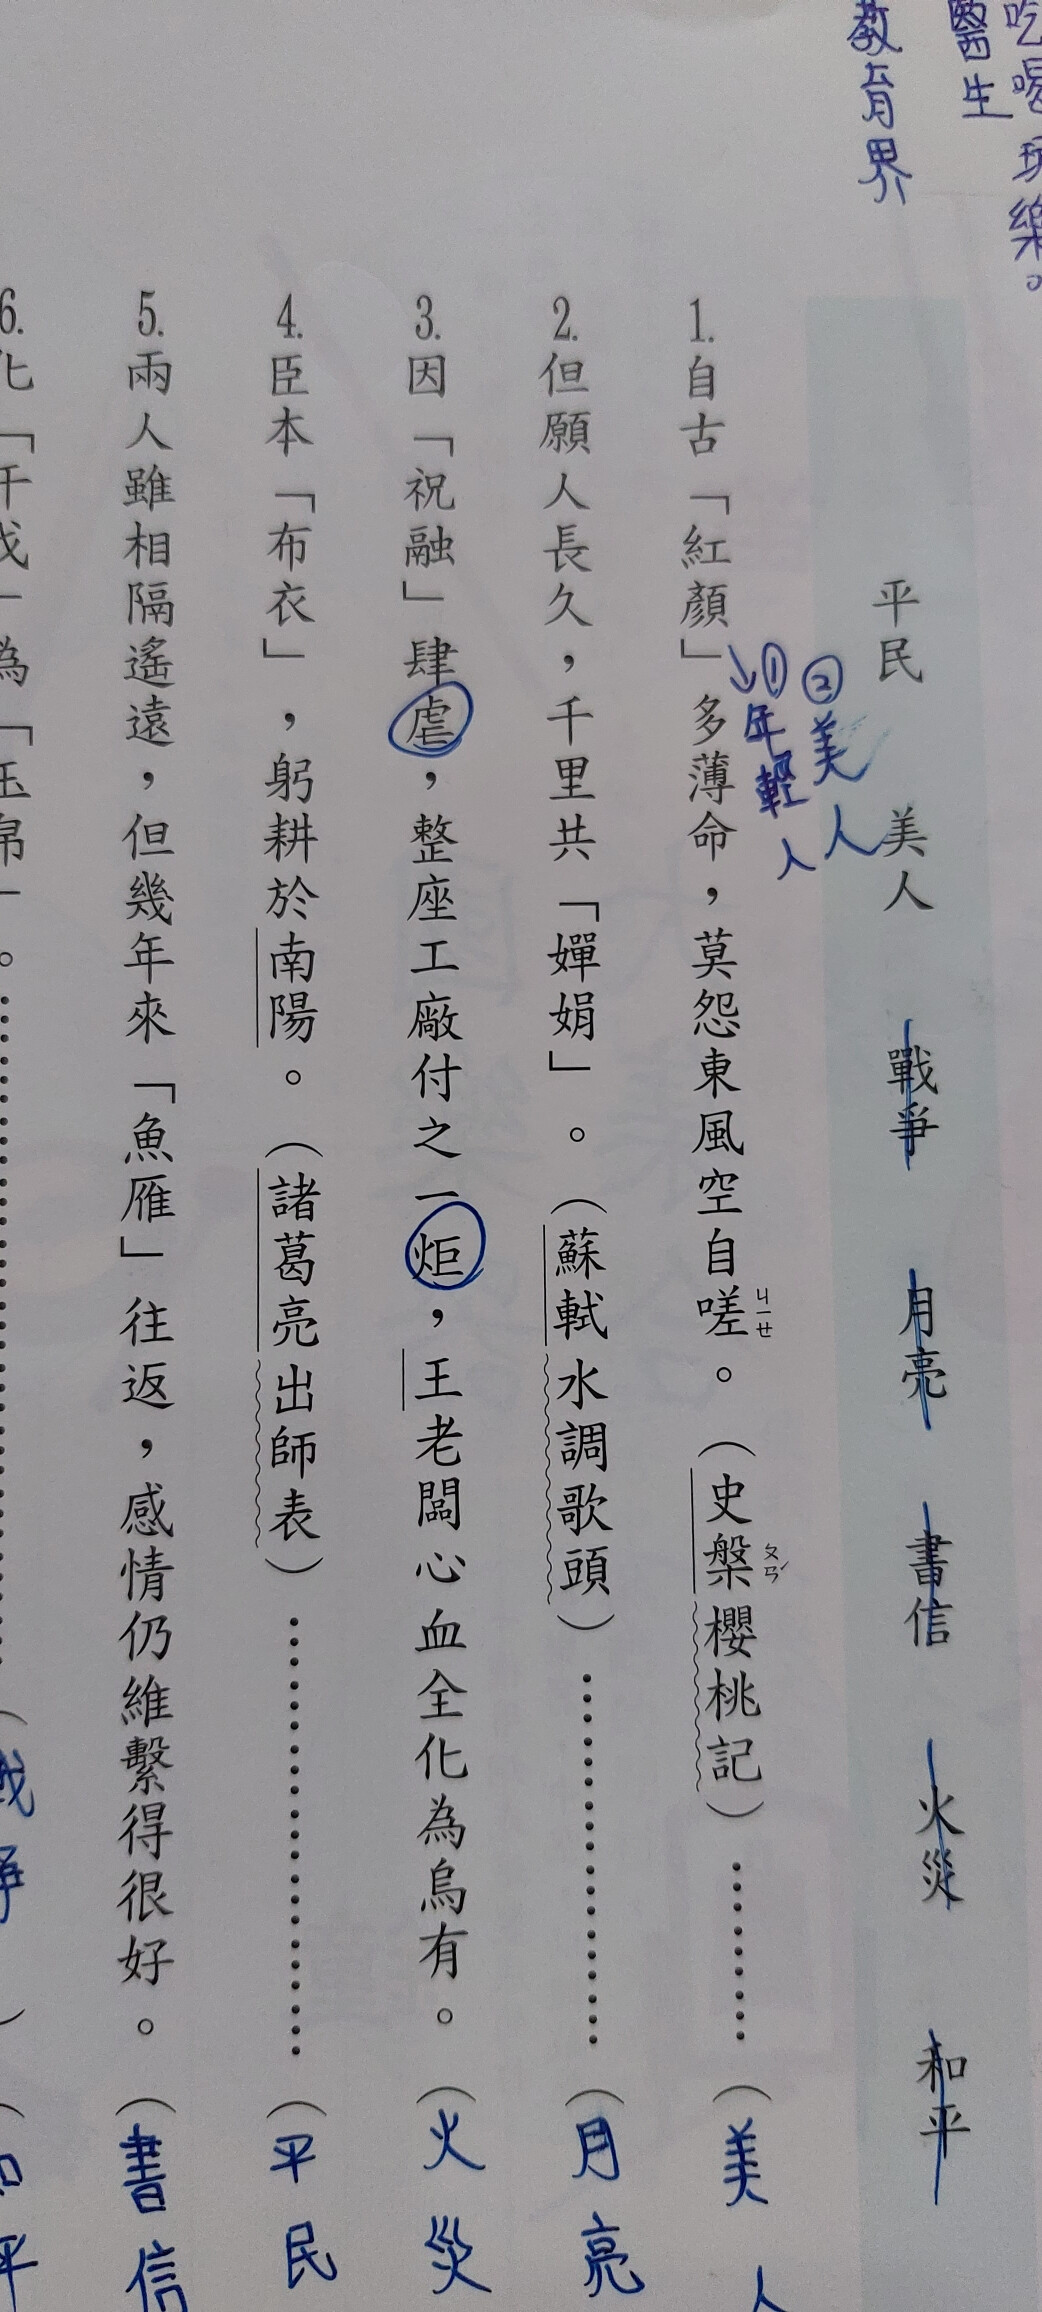 吃喝玩樂。
醫生
教育界
平民 美人 戰爭 月亮 書信 火災 和平
②美人
①年輕人
1.自古「紅顏」多薄命，莫怨東風空自嗟ㄐㄧㄝ。（史槃ㄆㄢˊ櫻桃記）………（美人
2.但願人長久，千里共「嬋娟」。（蘇軾水調歌頭）………………（月亮
3.因「祝融」肆虐，整座工廠付之一炬，王老闆心血全化為烏有。（火災
4.臣本「布衣」，躬耕於南陽。（諸葛亮出師表）…………………（平民
5.兩人雖相隔遙遠，但幾年來「魚雁」往返，感情仍維繫得很好。（書信
6.化「干戈」為「玉帛」。………………………（戰爭）（和平